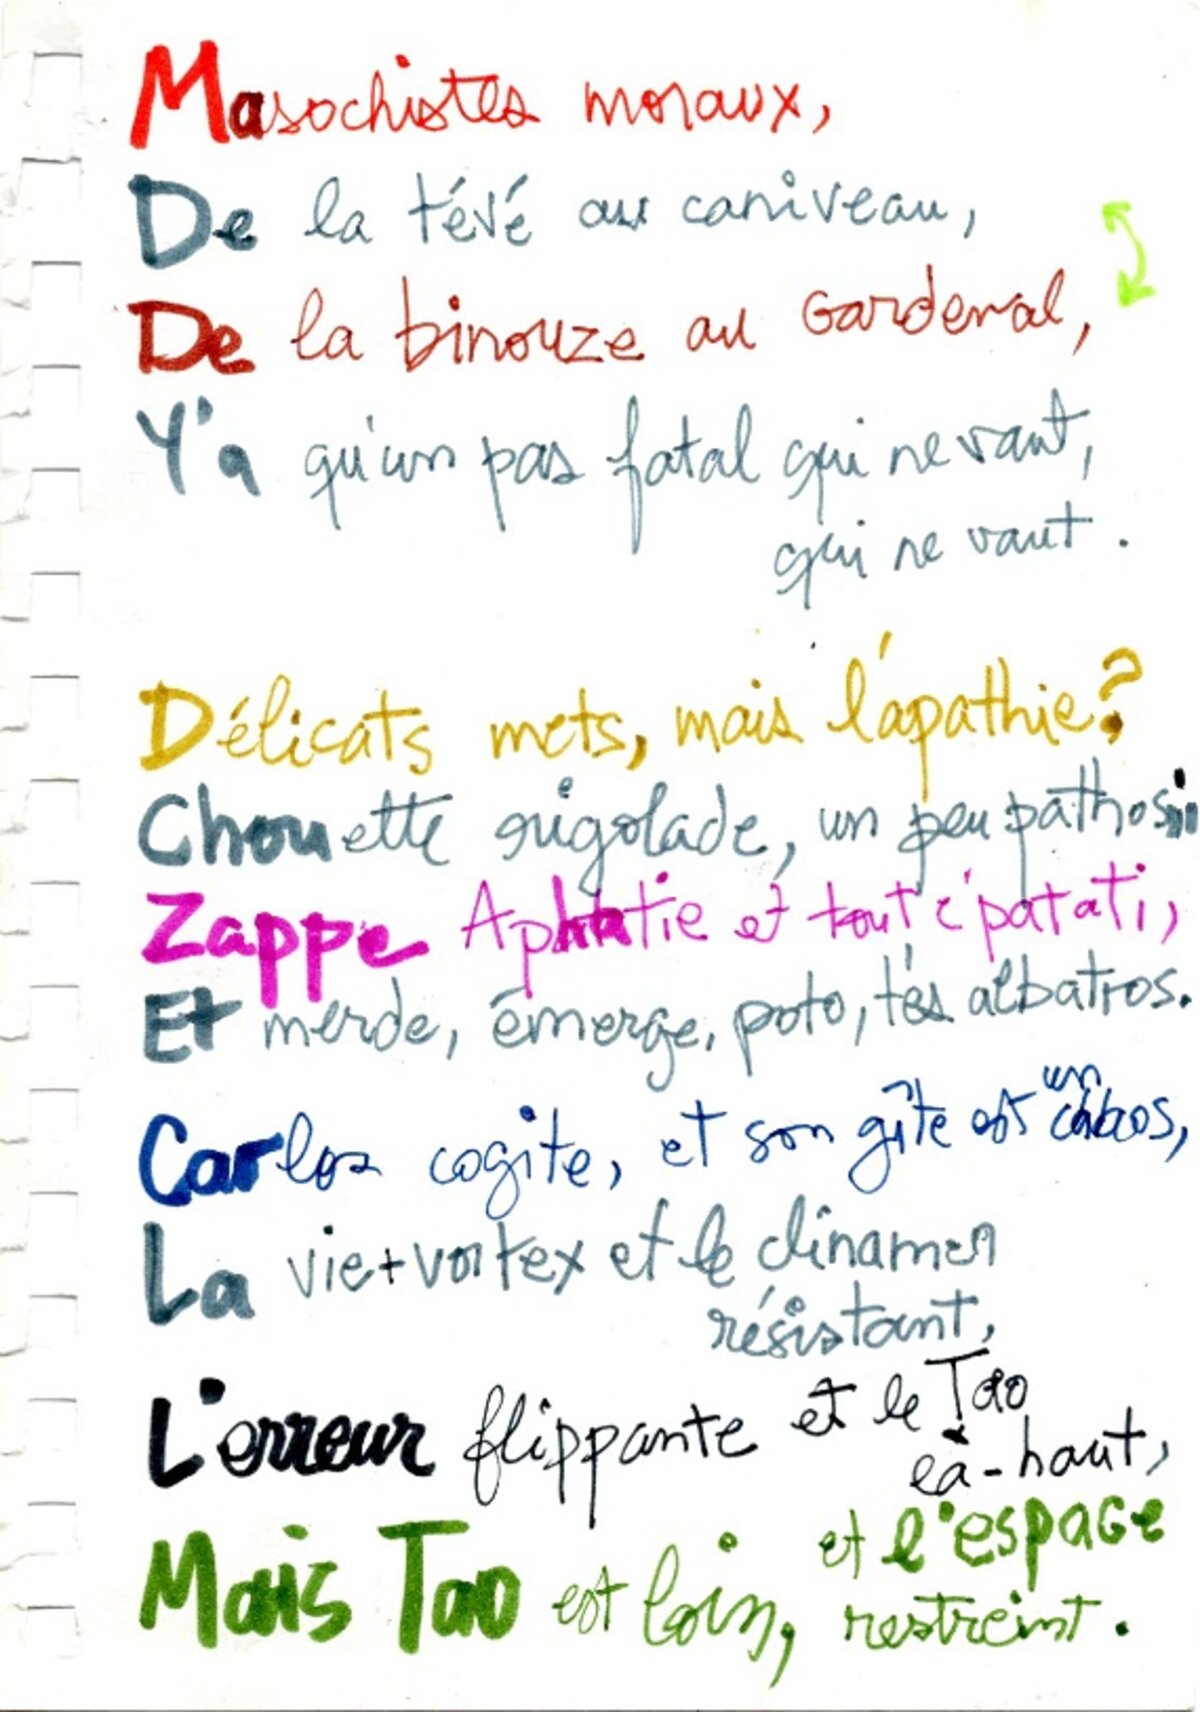 Masochistes moraux,
De la tévé au caniveau,
De la binouze au Gardenal,
Y'a qu'un pas fatal qui ne vaut,
qui ne vaut.
Délicats mets, mais l'apathie?
Chouette rigolade, un peu pathos
Zappe Aphatie et tout c'patati,
Et merde, émerge, poto, t'es albatros.
Carlos cogite, et son gîte est un cabos,
La vie+vortex et le clinamen
résistant,
L'erreur flippante et le Tao
là-haut,
Mais Tao est loin, et l'espace
restreint.